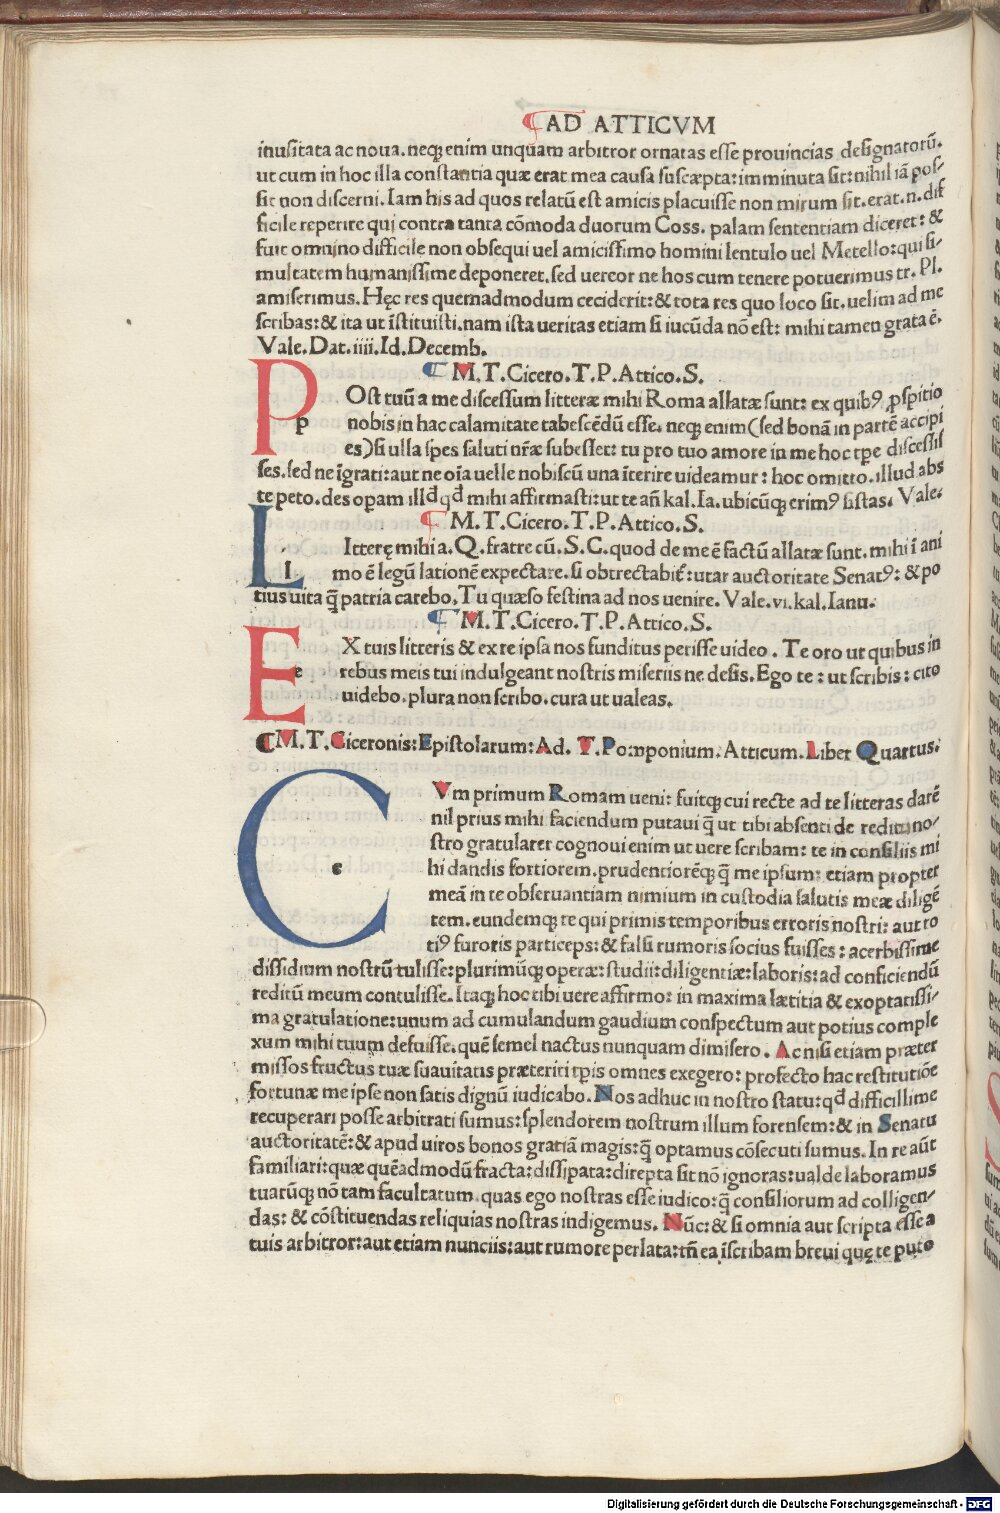 ¶AD ATTICVM
inusitata ac noua. neq; enim unquam arbitror ornatas esse prouincias designatorū.
ut cum in hoc illa constantia quæ erat mea causa suscæpta: imminuta sit: nihil iā pos/
sit non discerni. Iam his ad quos relatū est amicis placuisse non mirum sit. erat .n. dif
ficile reperire qui contra tanta cōmoda duorum Coss. palam sententiam diceret: &
fuit omnino difficile non obsequi uel amicissimo homini lentulo uel Metello: qui si/
multatem humanissime deponeret. sed uereor ne hos cum tenere potuerimus tr. Pl.
amiserimus. Hęc res quemadmodum ceciderit: & tota res quo loco sit. uelim ad me
scribas: & ita ut īstituisti. nam ista ueritas etiam si iucūda nō est: mihi tamen grata ē.
Vale. Dat. iiii. Id. Decemb.
¶ M. T. Cicero. T. P. Attico. S.
P p Ost tuū a me discessum litteræ mihi Roma allatæ sunt: ex quibꝰ ꝓspitio
nobis in hac calamitate tabescēdū esse. neq; enim (sed bonā in partē accipi
es) si ulla spes saluti nr̄æ subesset: tu pro tuo amore in me hoc tꝑe discessis
ses. sed ne īgrati: aut ne oīa uelle nobiscū una īterire uideamur: hoc omitto. illud abs
te peto. des opam illd̄ qd̄ mihi affirmasti: ut te an̄ kal. Ia. ubicūq; erimꝰ sistas. Vale.
¶ M. T. Cicero. T. P. Attico. S.
L l Itterę mihi a. Q. fratre cū. S. C. quod de me ē factū allatæ sunt. mihi ī ani
mo ē legū lationē expectare. si obtrectabit̄: utar auctoritate Senatꝰ: & po
tius uita q̄ patria carebo. Tu quæso festina ad nos uenire. Vale. vi. kal. Ianu.
¶ M. T. Cicero. T. P. Attico. S.
E e X tuis litteris & ex re ipsa nos funditus perisse uideo. Te oro ut quibus in
rebus meis tui indulgeant nostris miseriis ne desis. Ego te: ut scribis: cito
uidebo. plura non scribo. cura ut ualeas.
¶M. T. Ciceronis: Epistolarum: Ad. T. Pomponium. Atticum. Liber Quartus.
C c Vm primum Romam ueni: fuitq; cui recte ad te litteras darē
nil prius mihi faciendum putaui q̄ ut tibi absenti de reditu no/
stro gratularer cognoui enim ut uere scribam: te in consiliis mi
hi dandis fortiorem. prudentiorēq; q̄ me ipsum: etiam propter
meā in te obseruantiam nimium in custodia salutis meæ diligē
tem. eundemq; te qui primis temporibus erroris nostri: aut ro
tiꝰ furoris particeps: & falsi rumoris socius fuisses: acerbissime
dissidium nostrū tulisse: plurimūq; operæ: studii: diligentiæ: laboris: ad conficiendū
reditū meum contulisse. Itaq; hoc tibi uere affirmo: in maxima lætitia & exoptatissi/
ma gratulatione: unum ad cumulandum gaudium conspectum aut potius comple
xum mihi tuum defuisse. quē semel nactus nunquam dimisero. Ac nisi etiam præter
missos fructus tuæ suauitatis præteriti tꝑis omnes exegero: profecto hac restitutiōe
fortunæ me ipse non satis dignū iudicabo. Nos adhuc in nostro statu: qd̄ difficillime
recuperari posse arbitrati sumus: splendorem nostrum illum forensem: & in Senatu
auctoritatē: & apud uiros bonos gratiā magis: q̄ optamus cōsecuti sumus. In re aūt
familiari: quæ quēadmodū fracta: dissipata: direpta sit nō ignoras: ualde laboramus
tuarūq; nō tam facultatum. quas ego nostras esse iudico: q̄ consiliorum ad colligen/
das: & cōstituendas reliquias nostras indigemus. Nūc: & si omnia aut scripta esse a
tuis arbitror: aut etiam nunciis: aut rumore perlata: tn̄ ea īscribam breui quę te puto
Digitalisierung gefördert durch die Deutsche Forschungsgemeinschaft - DFG